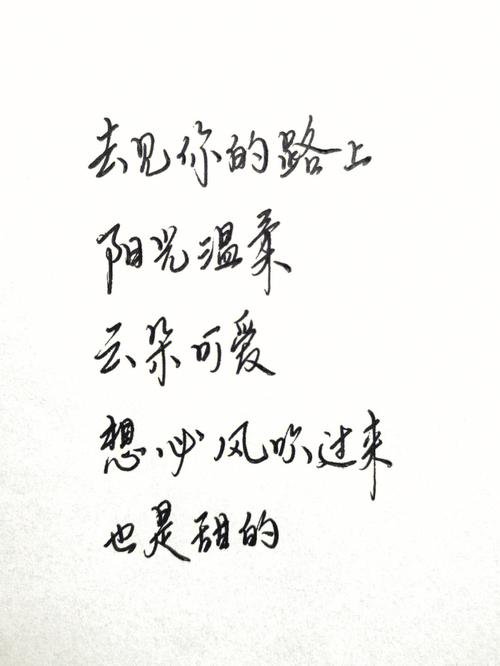 去见你的路上
阳光温柔
云朵可爱
想必风吹过来
也是甜的